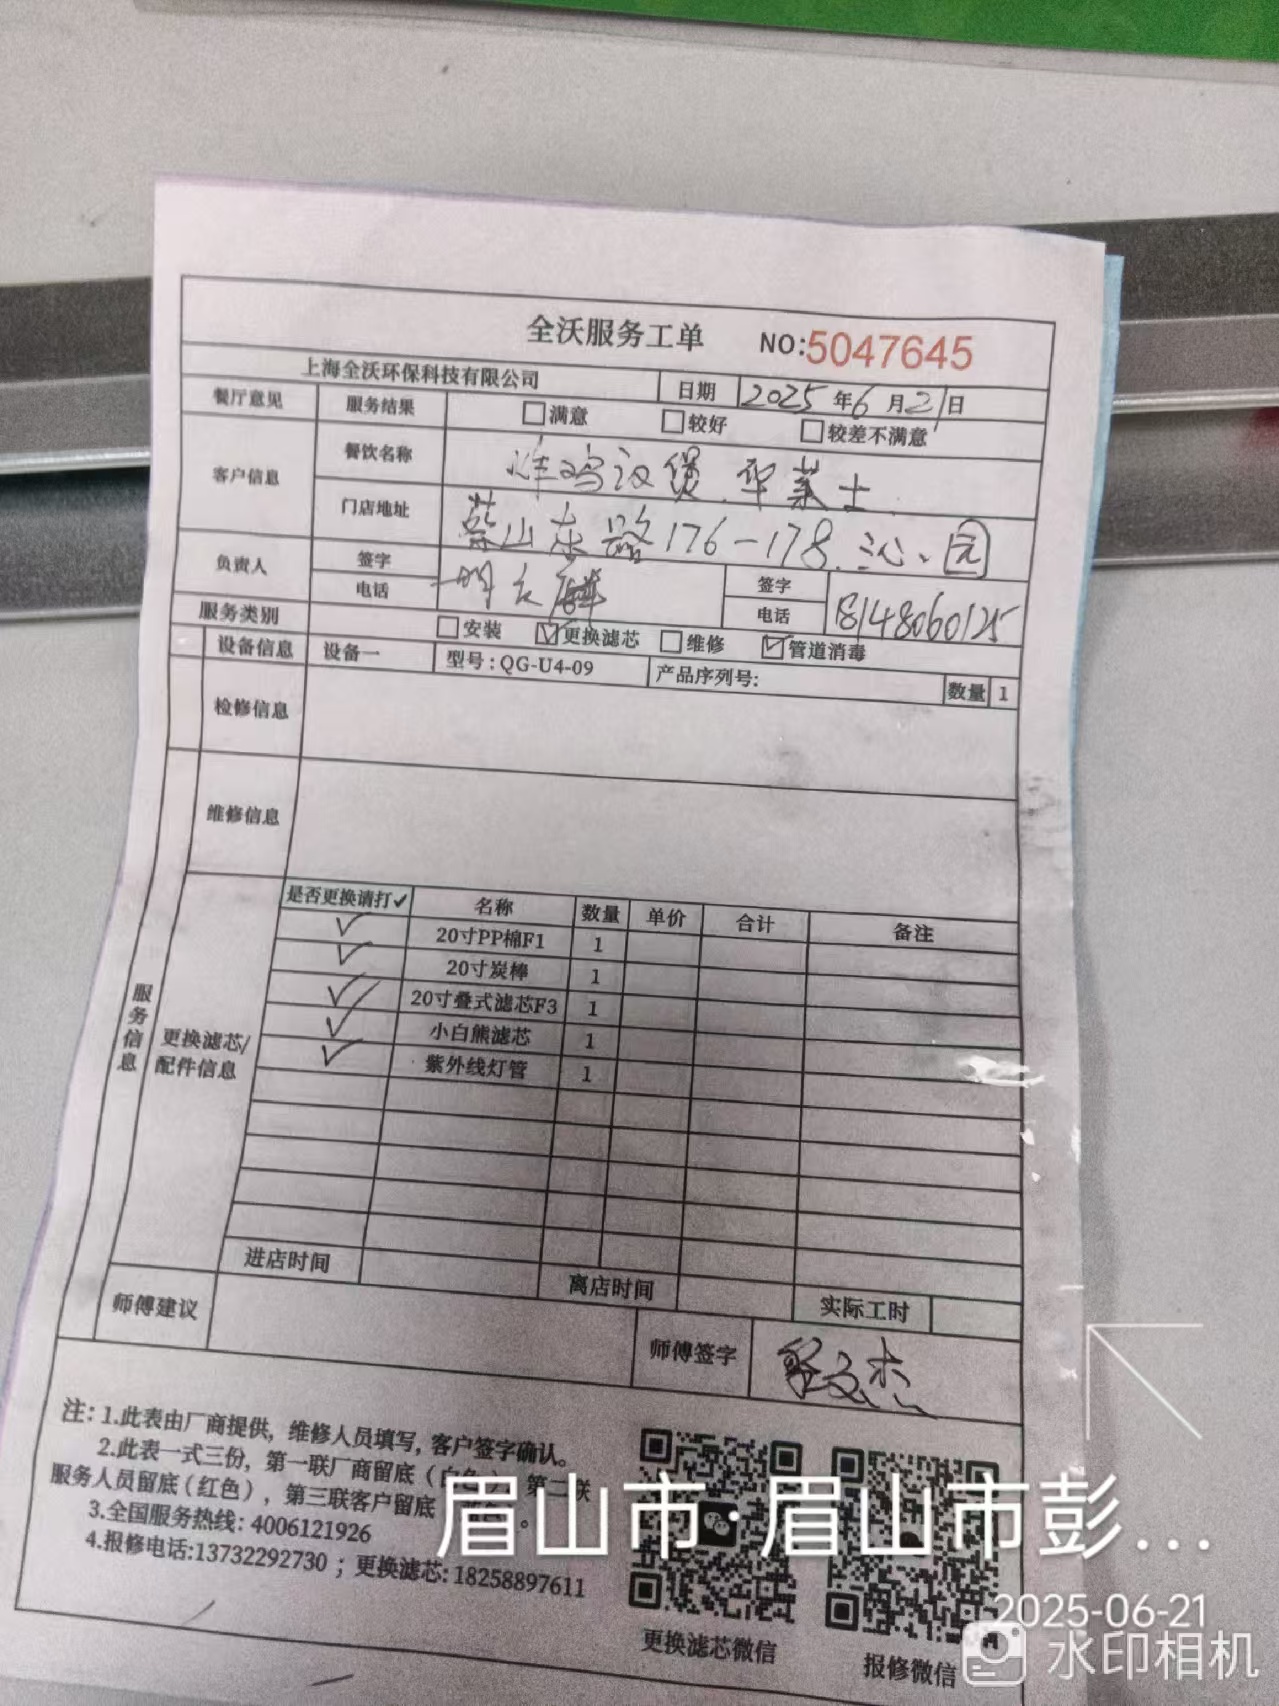 全沃服务工单 NO:5047645
上海全沃环保科技有限公司 日期 2025年6月21日
餐厅意见 服务结果 满意 较好 较差不满意
客户信息 餐饮名称 炸鸡汉煲.华莱士
门店地址 蔡山东路176-178.
负责人 签字 签字
电话 电话 18148060125
服务类别 安装 更换滤芯 维修 管道消毒
设备信息 设备一 型号:QG-U4-09 产品序列号: 数量 1
检修信息
维修信息
服务信息
更换滤芯/配件信息
是否更换请打✓ 名称 数量 单价 合计 备注
✓ 20寸PP棉F1 1
✓ 20寸炭棒 1
✓ 20寸叠式滤芯F3 1
✓ 小白熊滤芯 1
✓ 紫外线灯管 1
进店时间 离店时间 实际工时
师傅建议 师傅签字
注:1.此表由厂商提供,维修人员填写,客户签字确认。
2.此表一式三份,第一联厂商留底(白色),第二联
服务人员留底(红色),第三联客户留底
3.全国服务热线:4006121926
4.报修电话:13732292730;更换滤芯:18258897611
更换滤芯微信 报修微信
眉山市·眉山市彭...
2025-06-21
水印相机